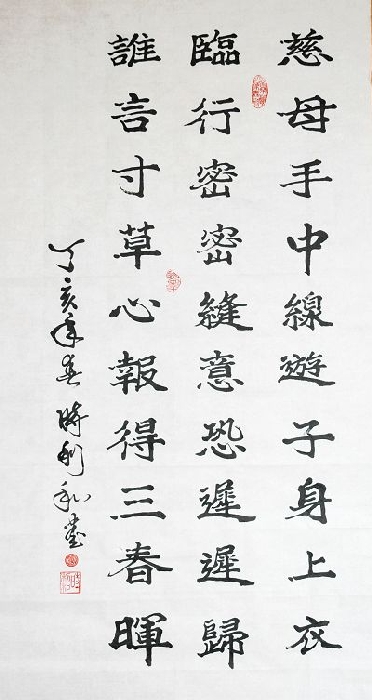 慈母手中線遊子身上衣
臨行密密縫意恐遲遲歸
誰言寸草心報得三春暉
丁亥年春時利和書